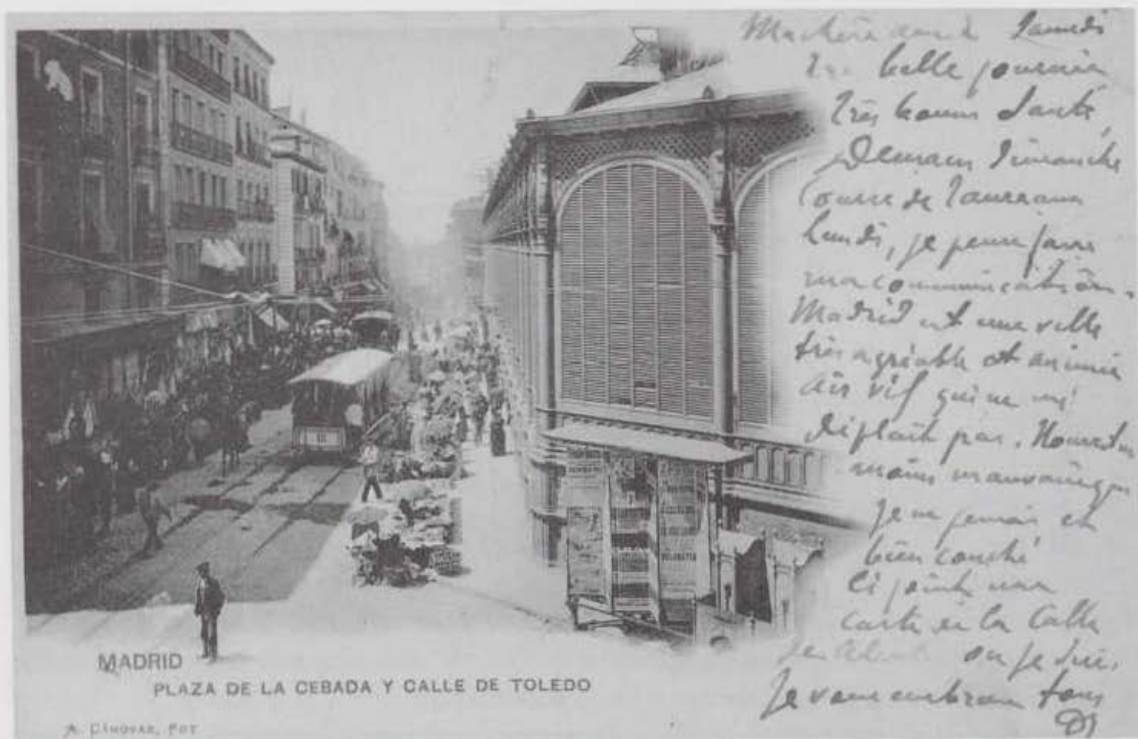 Ma chère amie Samedi
Très belle journée
Très bonne Santé,
Demain Dimanche
Course de Taureaux
Lundi, je pense faire
ma communication.
Madrid est une ville
très agréable et animée
air vif qui ne me
déplait pas. Nourriture
moins mauvaise que
je ne pensais et
bien couché
Ci joint une
carte de la Calle
de où je suis.
Je vous embrasse tous
MADRID
PLAZA DE LA CEBADA Y CALLE DE TOLEDO
A. CÁNOVAS, FOT